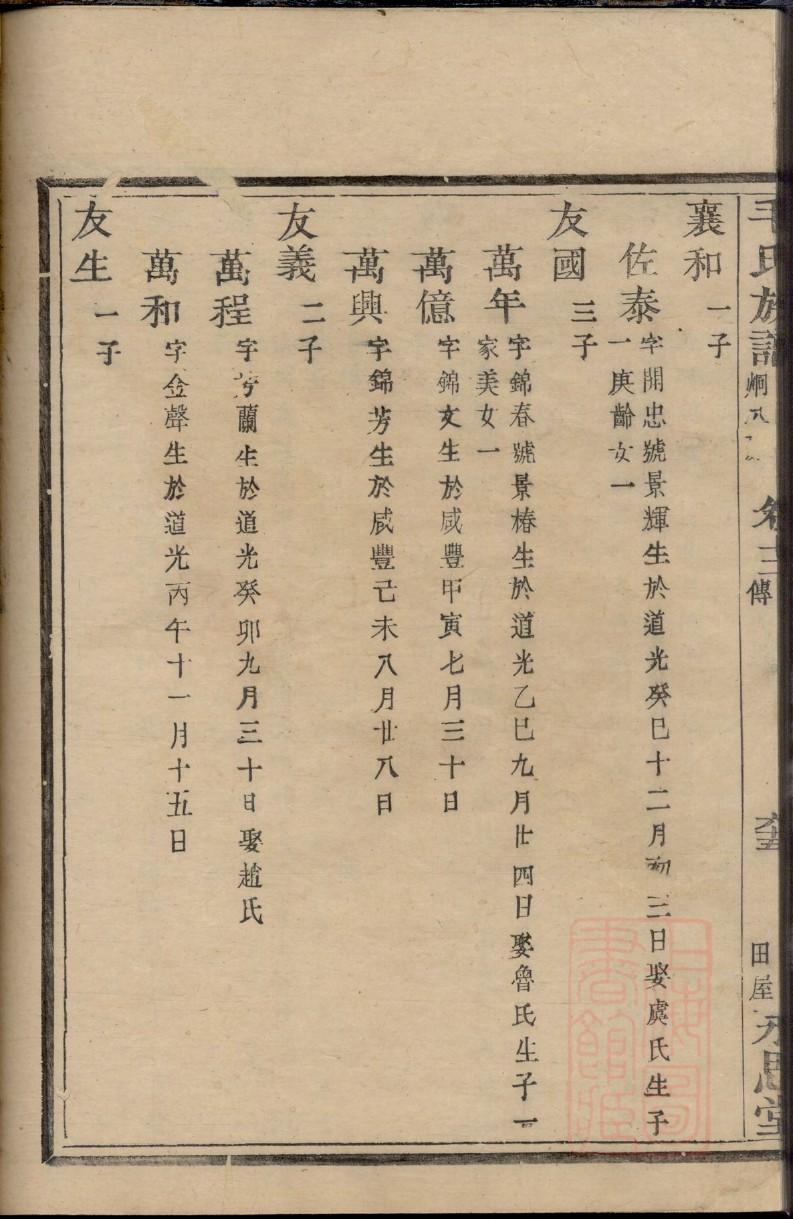 毛氏族譜
卷三傳
田屋
永思堂
襄和一子
佐泰字開忠號景輝生於道光癸巳十二月初三日娶虞氏生子
一庚齡女一
友國三子
萬年字錦春號景椿生於道光乙巳九月廿四日娶魯氏生子一
家美女一
萬億字錦文生於咸豐甲寅七月三十日
萬興字錦芳生於咸豐己未八月廿八日
友義二子
萬程字芳蘭生於道光癸卯九月三十日娶趙氏
萬和字金聲生於道光丙午十一月十五日
友生一子
上海圖書館藏